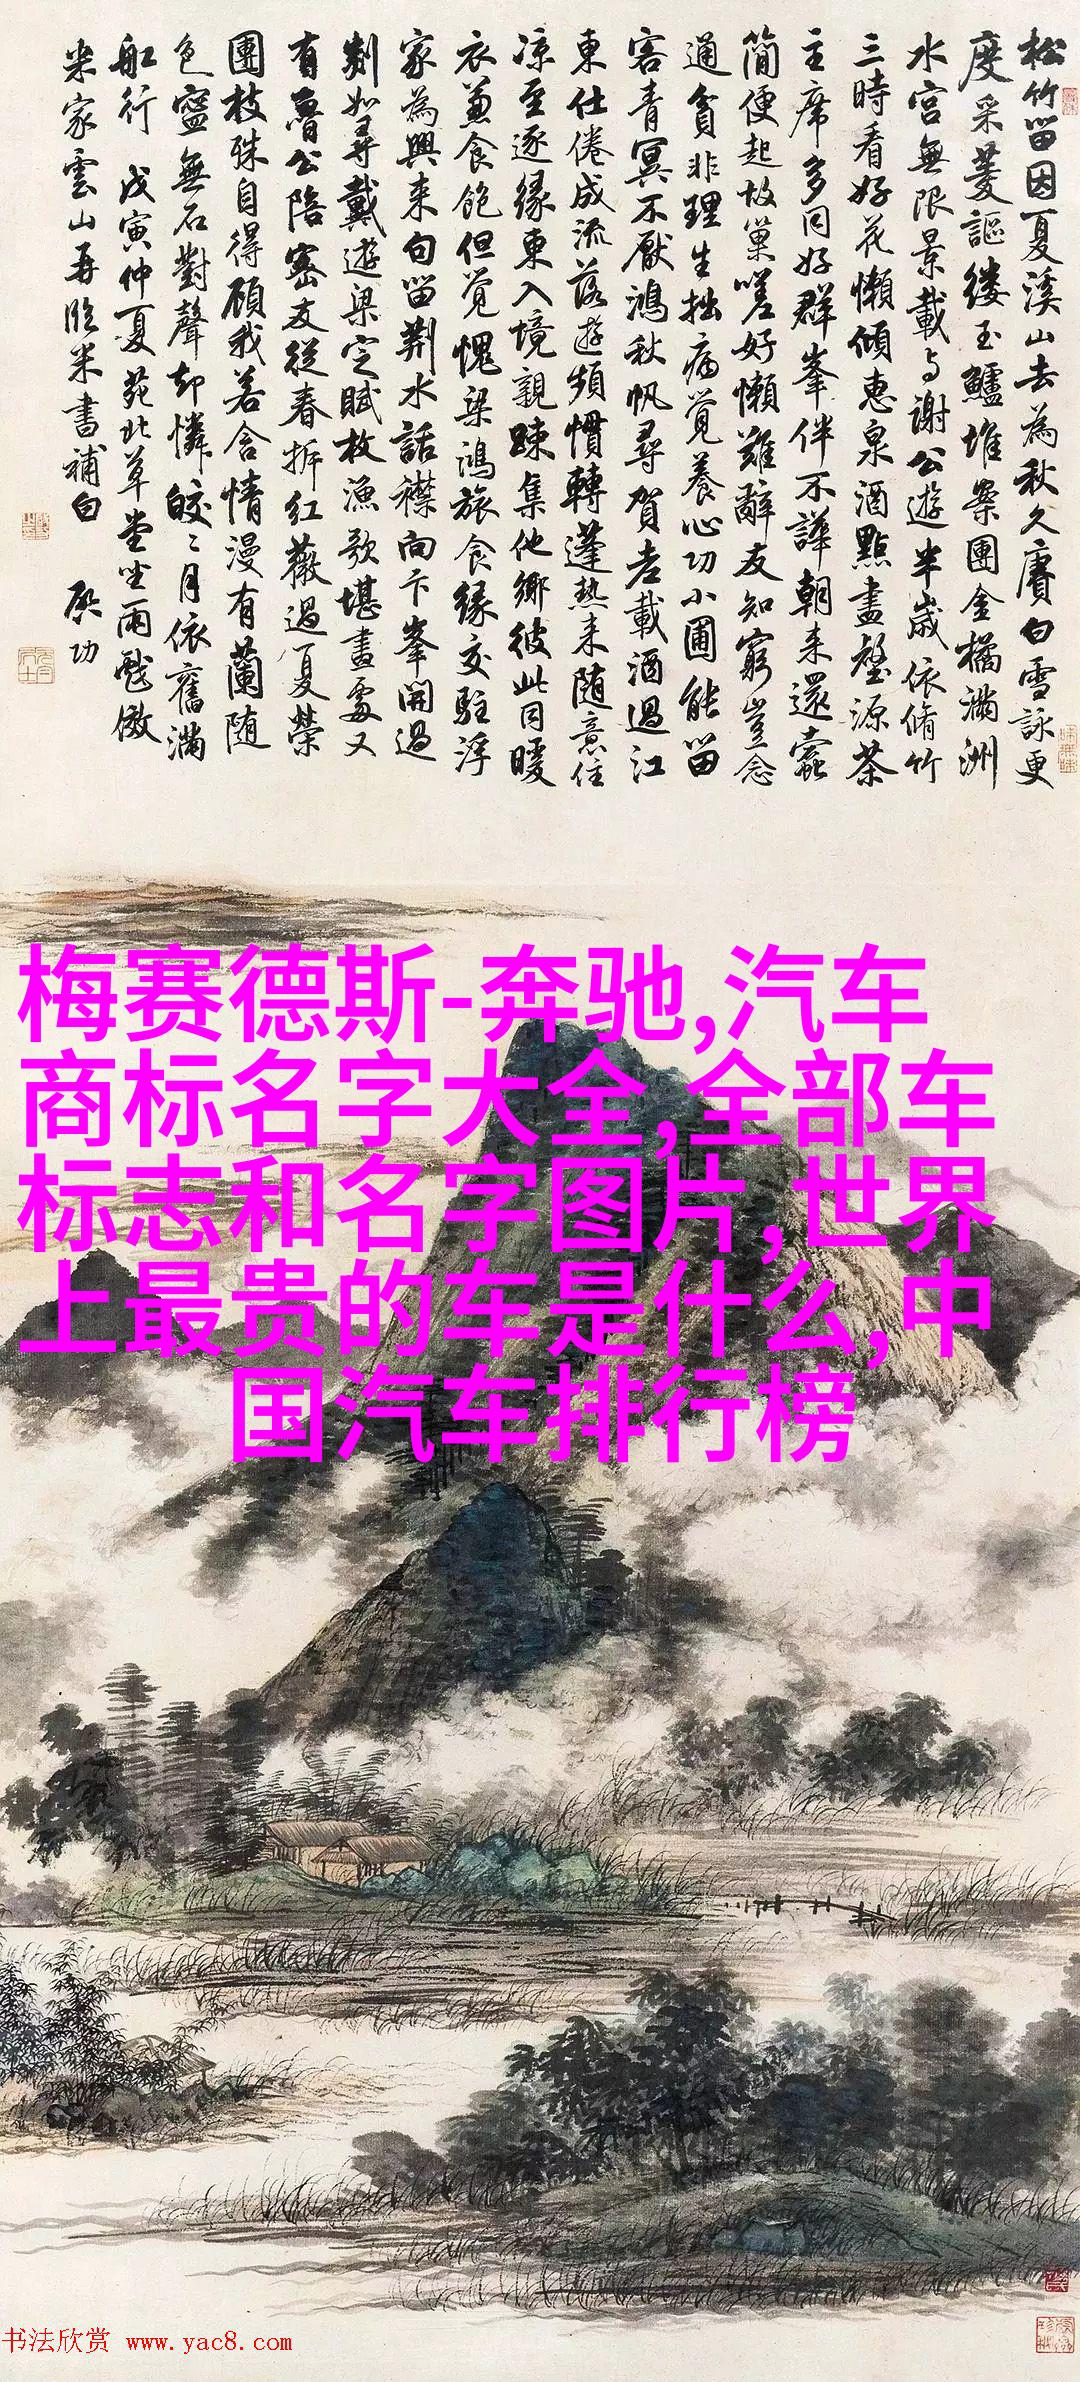 松竹留因夏溪山去為秋久賡白雪詠更
度采菱謳縷玉鱸堆案團金橘滿洲
水宮無限景載与謝公遊半歲依脩竹
三時看好花懶傾惠泉酒點盡壑源茶
主席多同好群峯伴不譁朝来還蠹
簡便起故巢嗟好懶難辭友知窮豈念
通貧非理生拙病覺養心功小圃能留
客青冥不厭鴻秋帆尋賀老載酒過江
東仕倦成流落遊頻慣轉蓬熱来随意住
凉至逐緣東入境親踈集他鄉彼此同暖
衣兼食飽但覺愧梁鴻旅食緣交駐浮
家為興来句留荆水話襟向卞峯開過
剡如尋戴遊梁定賦枚漁歌堪畫處又
有魯公陪密友從春拆紅薇過夏榮
團枝殊自得顧我若含情漫有蘭随
色寧無石對聲却憐皎〻月依舊滿
舡行 戊寅仲夏苑北草堂坐雨戲倣
米家雲山再臨米書補白 啟功
梅赛德斯-奔驰,汽车
商标名字大全,全部车
标志和名字图片,世界
上最贵的车是什么,中
国汽车排行榜
书法欣赏 www.yac8.com